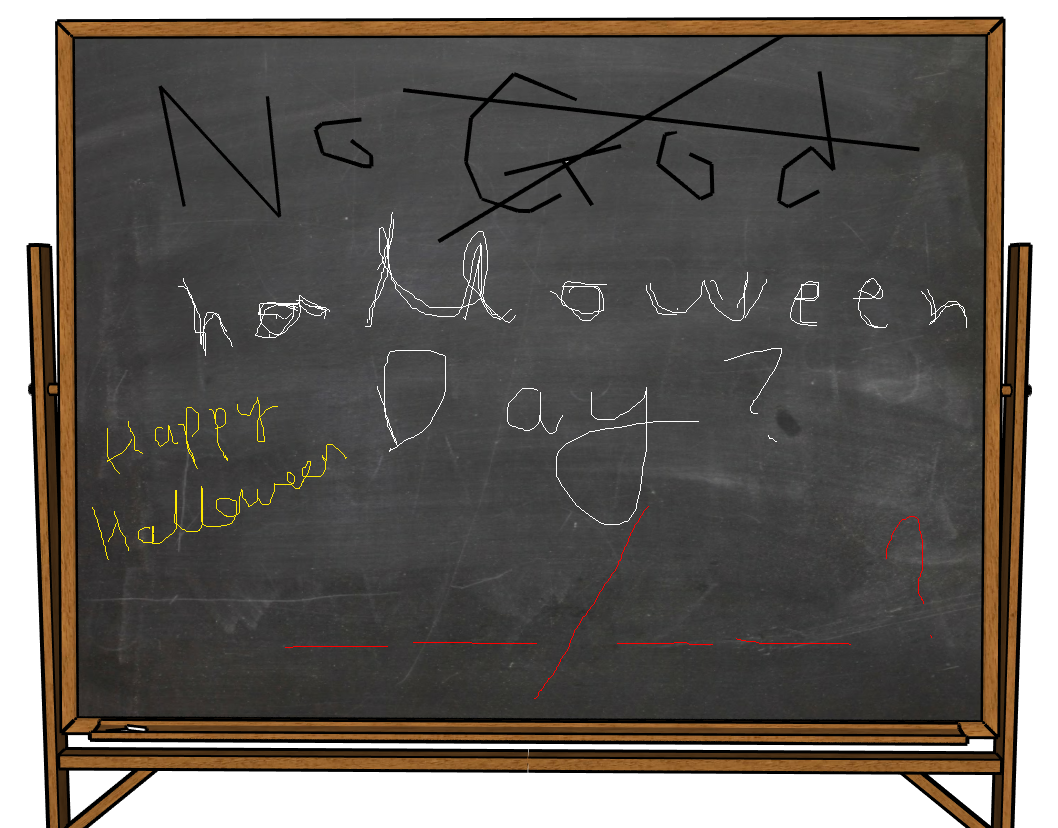 No God
halloween
Day ?
Happy
Halloween